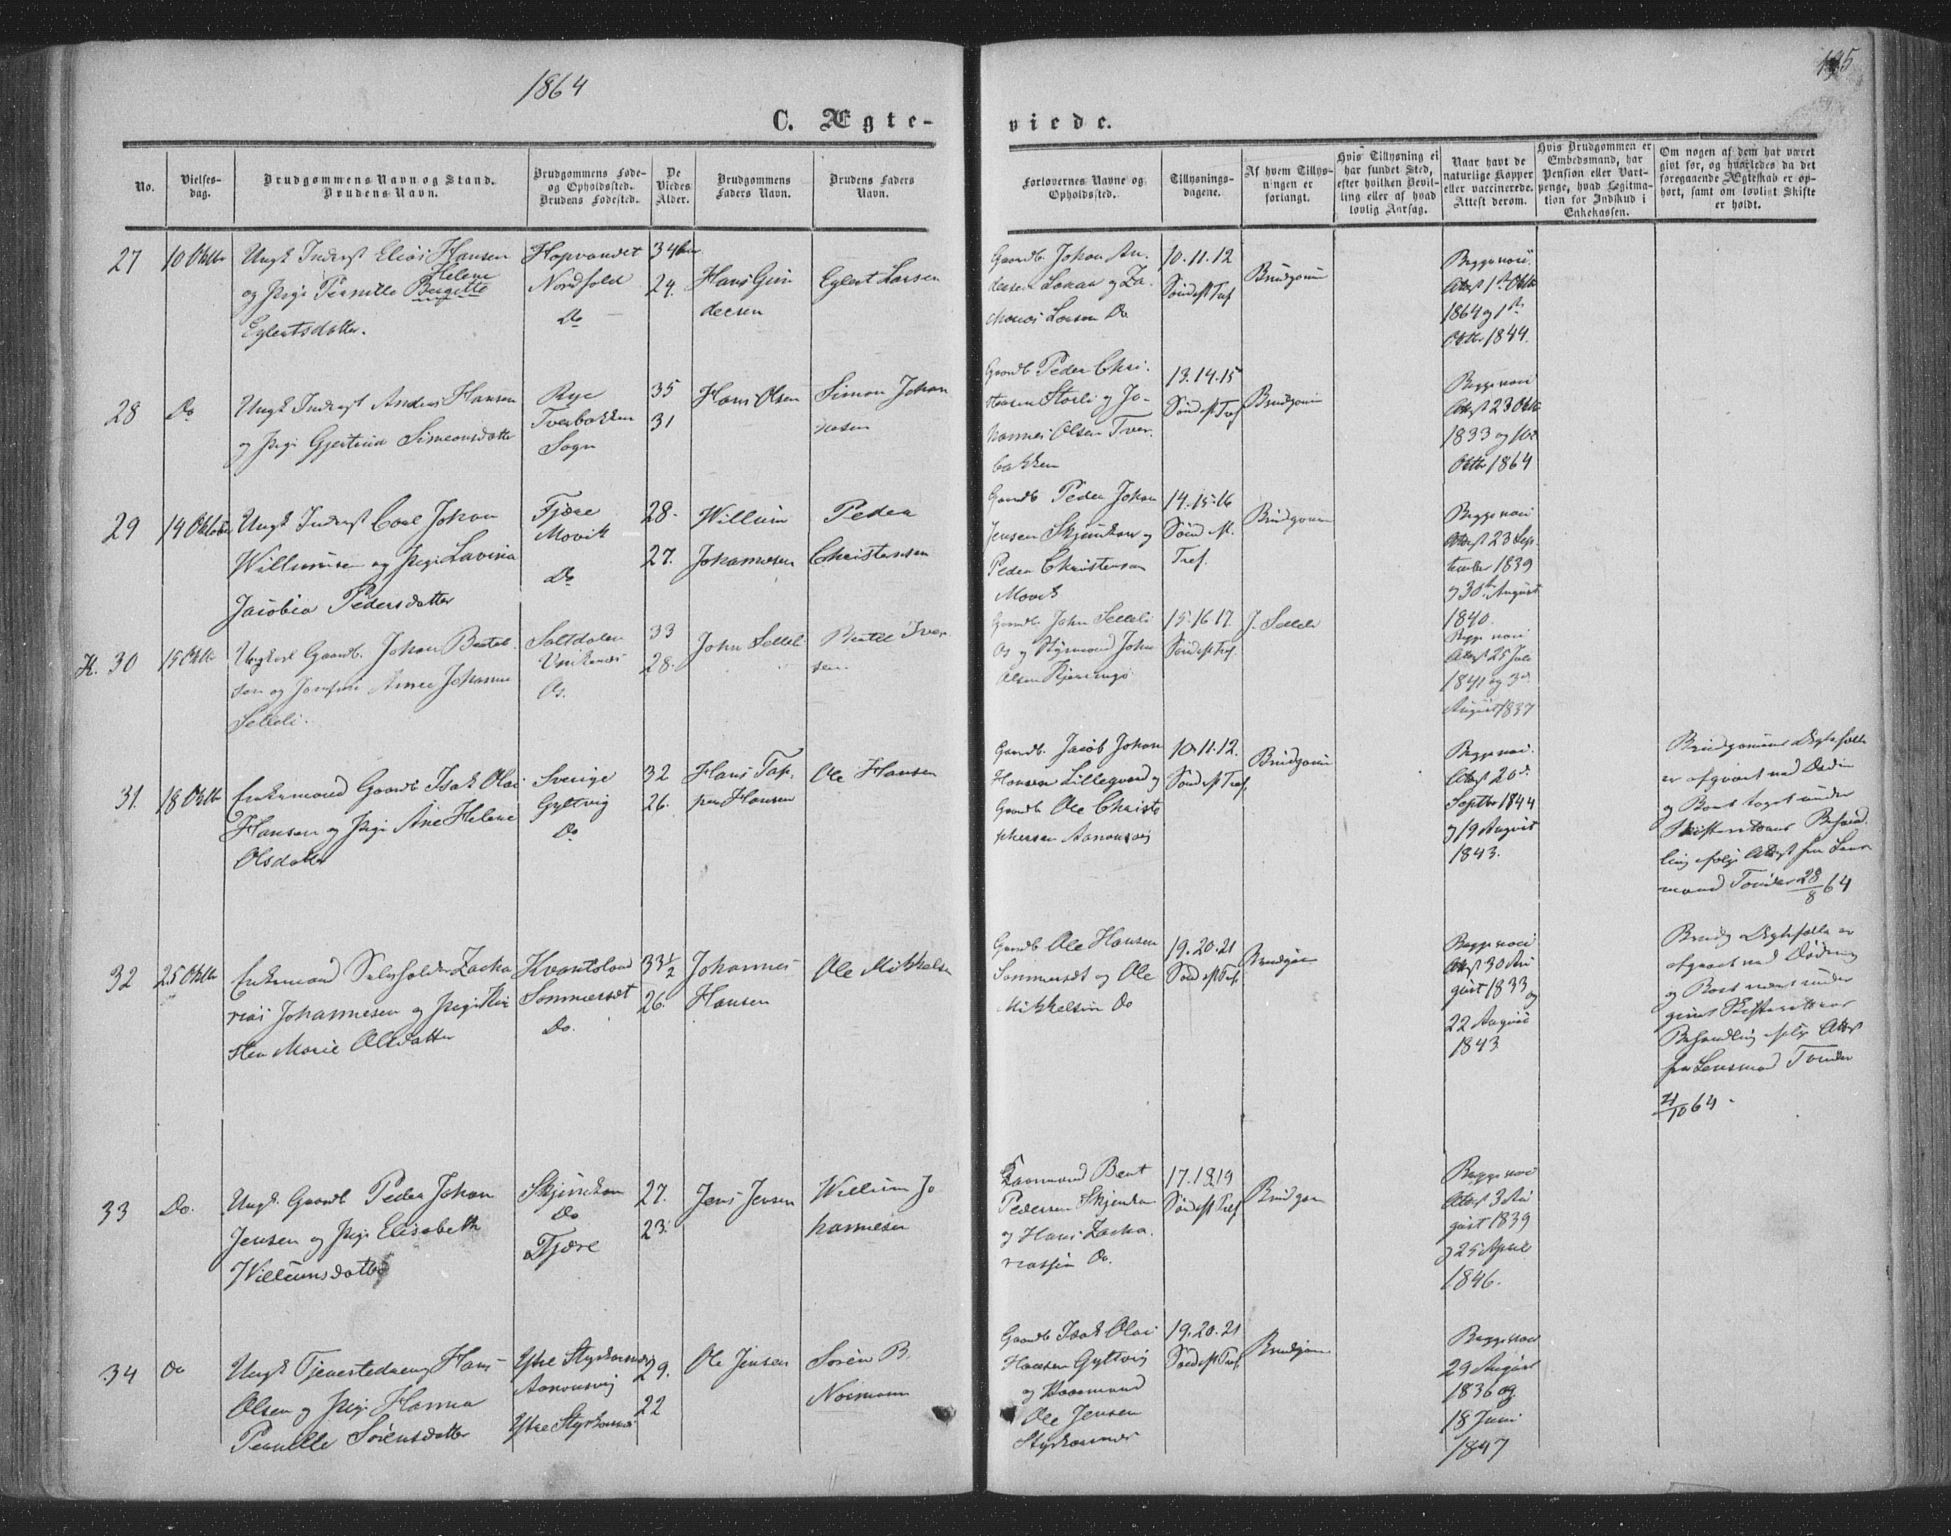 1864
195
C. Ægte-
viede.
No.
Vielses-
dag.
Brudgommens Navn og Stand.
Brudens Navn.
Brudgommens Føde-
og Opholdssted.
Brudens Fødested.
De
Viedes
Alder.
Brudgommens
Faders Navn.
Brudens Faders
Navn.
Forlovernes Navne og
Opholdssted.
Tillysnings-
dagene.
Af hvem Tillys-
ningen er
forlangt.
Hvis Tillysning ei
har fundet Sted,
efter hvilken Bevil-
ling eller af hvad
lovlig Aarsag.
Naar havt de
naturlige Kopper
eller vaccinerede.
Attest derom.
Hvis Brudgommen er
Embedsmand, har
Pension eller Vart-
penge, hvad Legitima-
tion for Indskud i
Enkekassen.
Om nogen af dem har været
gift før, og hvorledes da det
foregaaende Ægteskab er op-
hørt, samt om lovligt Skifte
er holdt.
27
10 Oktbr
Ungk. Inderst Elias Hansen
Helene
og Pige Pernille Bergitte
Eglertsdatter.
Hopvandet
Nordfold
Do
34
24.
Hans Gun
dersen
Eglert Larsen
Gaardb. Johan An.
dersen og Za
charias Larsen Do
10.11.12
Sønd eft Tref
Brudgom
Begge vacc.
Attest 1st Oktbr
1864 og 1st
Oktbr 1844.
28
Do
Ungk. Inderst Anders Hansen
og Pige Gjertrud Simeonsdatter
Rye
Tverbakken
Sogn
35
31
Hans Olsen
Simon Johan
nesen
Gaardb Peder Chri.
stensen Storli og Jo-
hannes Olsen Tver.
bakken
13.14.15
Sønd eft Tref
Brudgom
Begge vacc
Attest 23 Oktbr
1833 og
Oktbr 1864
29
14 Oktober
Ungk. Inderst Carl Johan
Willumsen og Pige Lavina
Jacobia Pedersdatter
Fjære
Movik
Do
28.
27.
Willum
Johannesen
Peder
Christensen
Gaardb Peder Johan
Jensen Skjunkan og
Peder Christensen
Movik
14.15.16
Sønd eft.
Tref.
Brudgom
Begge vacc
Attest 23 Sep.
tember 1839
og 30te August
1840.
K. 30
15 Oktbr
Ungkarl Gaardb. Johan Bertel
sen og Jomfru Anne Johanna
Setleli.
Saltdalen
Os.
33
28.
John Setleli
Bertel Iver
sen
Gaardb. John Setleli
Os og Styrmand John
Olsen Kjerringø
15.16.17
Sønd eft Tref.
J. Setleli
Begge vacc
Attest 25 Juli
1841 og 3d
August 1837
31.
18 Oktbr
Enkemand Gaardb Isak Olai
Hansen og Pige Ane Helene
Olsdatter
Sverige
Gyltvig
Do
32
26.
Hans Tap.
per Hansen
Ole Hansen
Gaardb. Jacob Johan
Hansen Lillegaard og
Gaardb Ole Christo
phersen Aanonsvig
10.11.12.
Sønd eft Tref.
Brudgom
Begge vacc.
Attest 20d
Septbr 1844
og 19 August
1843.
Brudgomens Ægtefælle
er afgaaet ved Døden
og Boet taget under
Skifterettens Behand
ling ifølge Attest fra Lens
mand Tonder 28/8 64
32
25 Oktbr
Enkemand Selvholder Zacha
rias Johannesen og Pige Kir
sten Marie Olsdatter
Kvantoland
Sommerset
Do.
33 1/2
26.
Johannes
Hansen
Ole Mikkelsen
Gaardb Ole Hansen
Sommerset og Ole
Mikkelsen Do
19.20.21
Sønd eft Tref.
Brudgom
Begge vacc
Attest 30 Au
gust 1833 og
22 August
1843
Brudg Ægtefælle er
afgaaet ved Døden
og Boet under
Skifterettens
Behandling ifølge Attest
fra Lensmand Tonder
21/10 64.
33
Do.
Ungk. Gaardb Peder Johan
Jensen og Pige Elisabeth
Willumsdatter
Skjunkan
Do
Fjære
27.
23.
Jens Jensen
Willum Jo
hannesen
Kaarmand Bent
Pedersen Skjunkan
og Hans Zacha.
riassen Do.
17.18.19
Sønd eft Tref
Brudgom
Begge vacc
Attest 3 Au
gust 1839
og 25 April
1846.
34
Do
Ungk Tjenestedreng Hans
Olsen og Pige Hanna
Pernelle Sørensdatter
Ytre Styrkesnæs
Aanonsvig
Ytre Styrkesnæs
29.
22
Ole Jensen
Søren B.
Normann
Gaardb Isak Olai
Hansen Gyltvig
og Kaarmand
Ole Jensen
Styrkesnæs
19.20.21
Sønd eft Tref.
Brudgom
Begge vacc
29 August
1836 og
18 Juni
1847